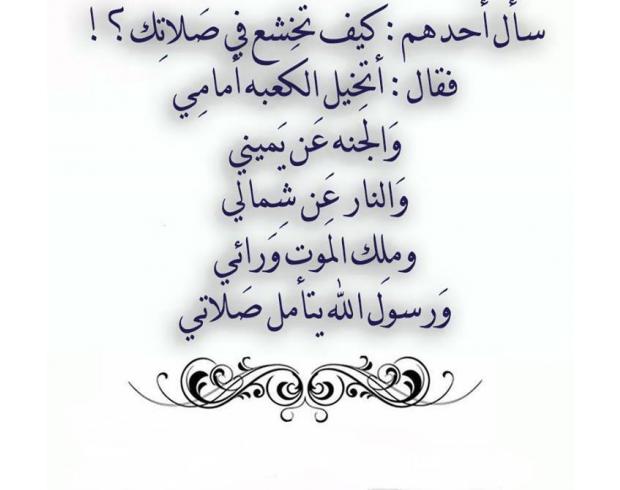 سأل أحدهم : كيف تخِشع في صَلاتِك ؟ !
فقال : أتخِيل الكعبه أمامِي
وَالجَنه عَن يَميني
وَالنار عَِن شِمالي
وملِك المَوت وَرائي
وَرسولَ الله يتأمل صَلاتي